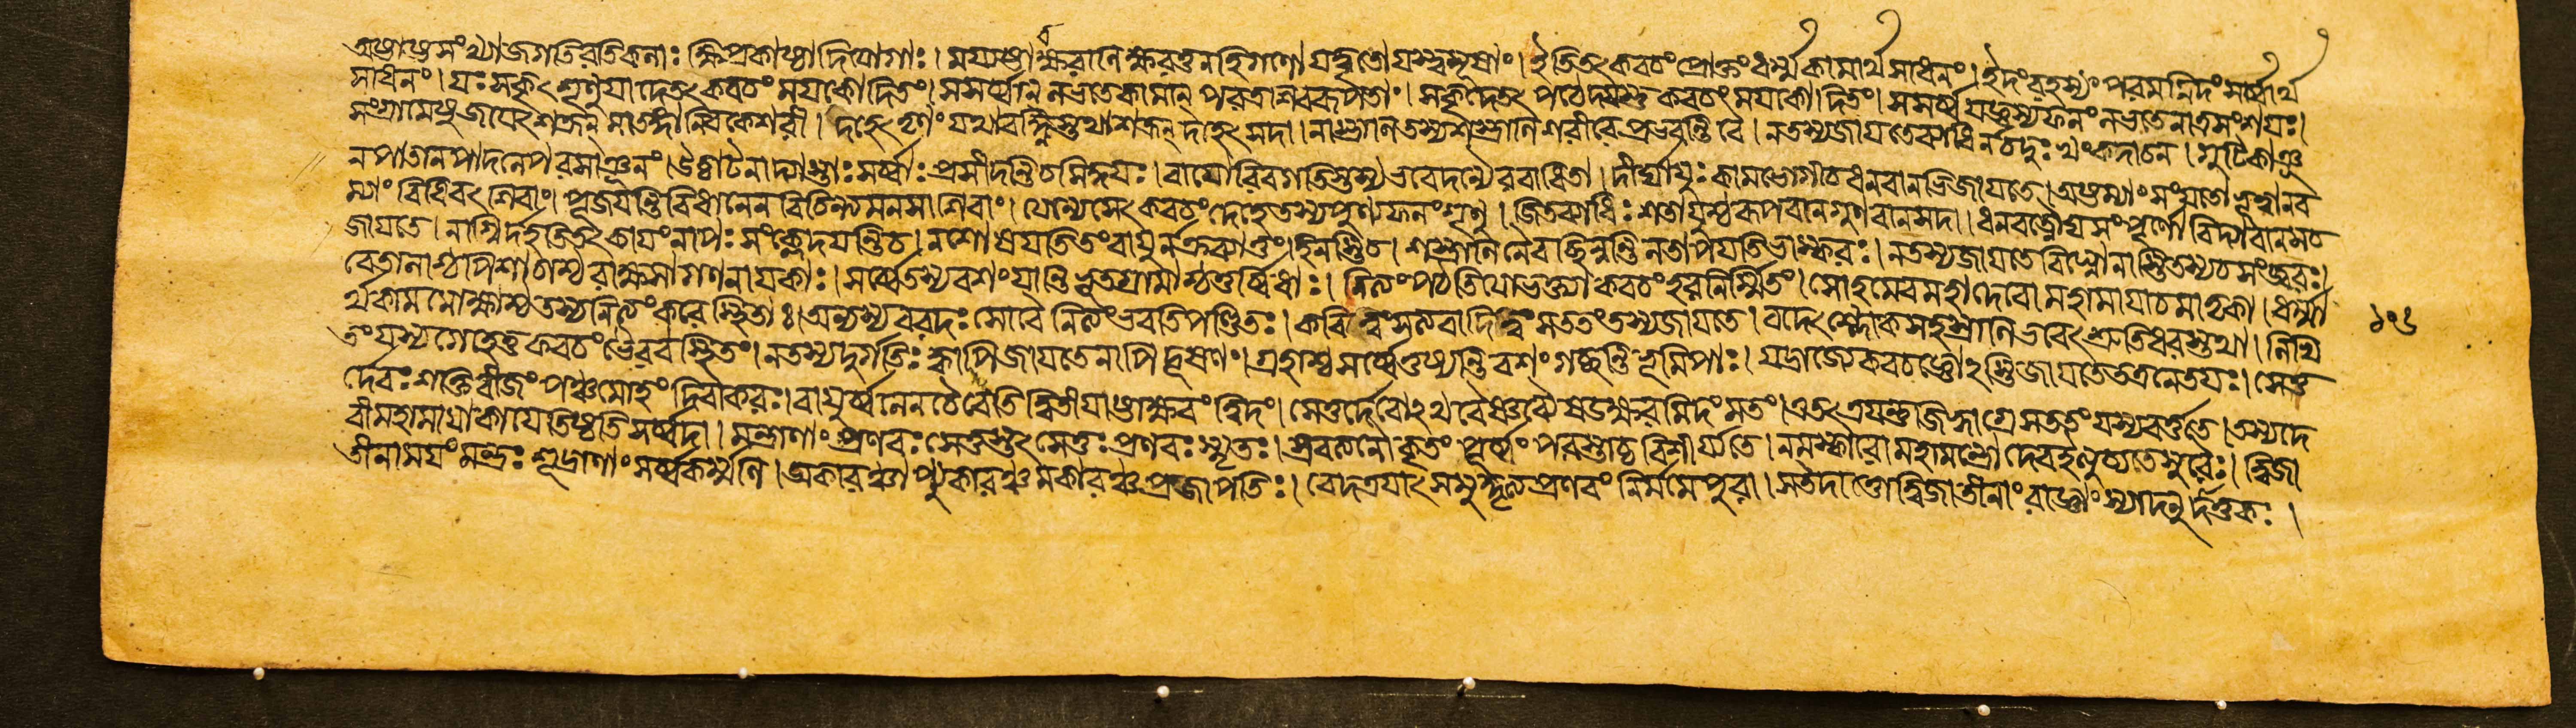 অষ্টাষ্টসংখ্যাজগতিরতিকলাঃ ক্ষিপ্রকাষ্ঠাদিযোগাঃ। ময্যষ্টাক্ষরানেক্ষরতুনহিগণো যদ্ধৃতোযস্ত্বমূষাং। ইতিতৎ কবচং প্রোক্তং ধর্ম্মকামার্থসাধনং। ইদংরহস্যং পরমমিদংসর্ব্বার্থ
সাধনং। যঃ সকৃৎ শৃণুযাদেতৎ কবচং মযকোদিতং। সসর্ব্বান্ লভতেকামান্ পরত্রশিবরূপতাং। সকৃদেতৎ পঠেদ্যস্তু কবচং মযকোদিতং। সসর্ব্বযজ্ঞস্যফলং লভতেনাত্রসংশযঃ।
সংগ্রামেষু জযেৎ শত্রূন্ মাতঙ্গানিবকেশরী। দহেৎ তৃণং যথাবহ্নিস্তথাশত্রূন্ দহেৎ সদা। নাস্ত্রাণিতস্যশস্ত্রাণি শরীরে প্রভবন্তি বৈ। নতস্যজাযতেব্যাধির্নচদুঃখংকদাচন। গুটিকাঞ্জ
নপাতালপাদলেপরসাঞ্জনং। উচ্চাটনাদ্যাস্তাঃ সর্ব্বাঃ প্রসীদন্তিচসিদ্ধযঃ। বাযোরিবগতিস্তস্য ভবেদন্যৈরবাধিতা। দীর্ঘাযুঃ কামভোগীচ ধনবানভিজাযতে। অষ্টম্যাং সংযতোভূত্বানব
ম্যাং বিধিবৎ শিবাং। পূজযিত্বাবিধানেন বিচিন্ত্যমনসাশিবাং। যোন্যসেৎ কবচং দেহেতস্যপুণ্যফলং শৃণু। জিতব্যাধিঃ শতাযুশ্চরূপবানগুণবানসদা। ধনরত্নৌঘসংপূর্ণোবিদ্যাবানসচ
জাযতে। নাগ্নির্দহতিতৎকাযং নাপঃ সংক্লেদযন্তিচ। নশোষযতিতংবাযুর্নক্রব্যাত্তং হিনস্তিচ। শস্ত্রাণিনৈবছিন্দন্তি নতাপযতিভাস্করঃ। নতস্যজাযতেবিঘ্নোনাস্তিতস্যচসংজ্বরঃ।
বেতালাশ্চপিশাচাশ্চ রাক্ষসাগণনাযকাঃ। সর্ব্বেতস্যবশংযান্তি ভূতগ্রামাশ্চতুর্ব্বিধাঃ। নিত্যংপঠতিযোভক্ত্যাকবচংহরনির্ম্মিতং। সোহমেবমহাদেবো মহামাযাচমাতৃকা। ধর্ম্মা
র্থকামমোক্ষাশ্চ তস্যনিত্যংকরেস্থিতাঃ। অন্যস্যবরদঃ সোবৈ নিত্যংভবতিপণ্ডিতঃ। কবিত্বংসত্যবাদিত্বং সততংতস্যজাযতে। বদেৎ শ্লোকসহস্রাণিভবেৎ শ্রুতিধরস্তথা। লিখি
তংযস্যগেহেতুকবচংভৈরবস্থিতং। নতস্যদুর্গতিঃ ক্বাপিজাযতেনাপিদূষণং। গ্রহাশ্চসর্ব্বেতুষ্যন্তি বশংগচ্ছন্তিভূমিপাঃ। যদ্রাজ্যেকবচজ্ঞোঽস্তিজাযতেতত্রনেতযঃ। সেতু
র্দেবঃ শক্তিবীজং পঞ্চমোহং দিবাকরঃ। বাযুর্ব্বলেনচৈবেতি দ্বিতীযাষ্টাক্ষরংত্বিদং। সেতুর্দেবোঽথবৈষ্ণব্যৈষডক্ষরমিদংমতং। এতৎত্রযন্তুজিহ্বাগ্রেসততংযস্যবর্ত্ততে। তস্যদে
বীমহামাযাকাযেতিষ্ঠতিসর্ব্বদা। মন্ত্রাণাং প্রণবঃ সেতুস্তৎসেতুঃ প্রণবঃ স্মৃতঃ। স্রবত্যনোংকৃতং পূর্ব্বং পরস্তাচ্চবিশীর্য্যতে। নমস্কারোমহামন্ত্রো দেবইত্যুচ্যতেসুরৈঃ। দ্বিজা
তীনামযংমন্ত্রঃ শূদ্রাণাংসর্ব্বকর্ম্মণি। অকারঞ্চাপ্যুকারঞ্চমকারঞ্চপ্রজাপতিঃ। বেদত্রযাৎসমুদ্ধৃত্যপ্রণবং নির্মমেপুরা। সউদাত্তোদ্বিজাতীনাং রাজ্ঞাংস্যাদনুদাত্তকঃ।